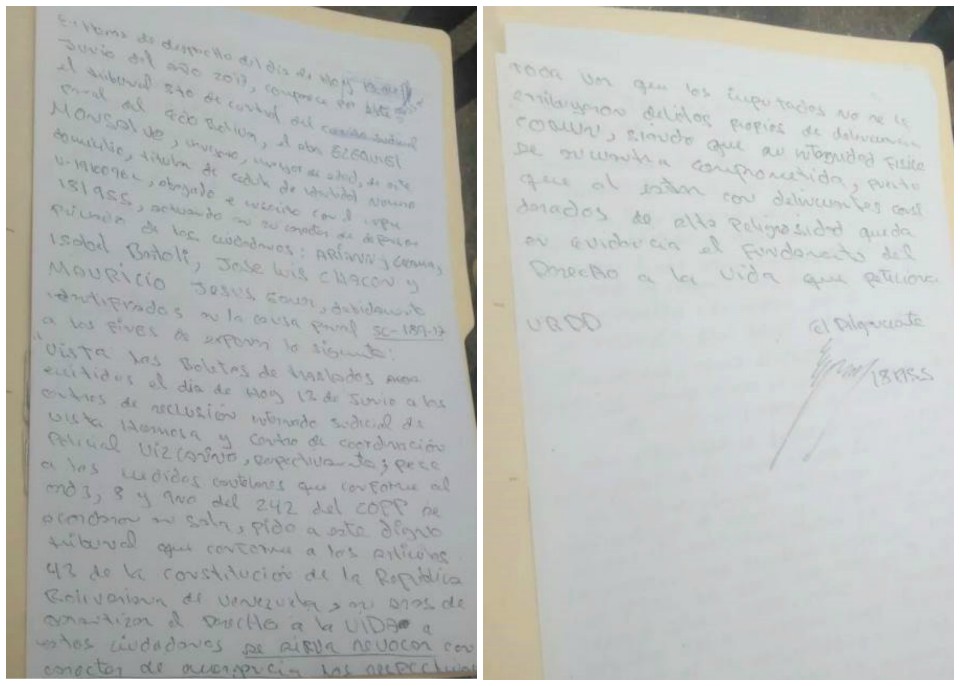 En Horas de despacho del día de Hoy
Junio del año 2017, comparece por ante
el tribunal 5to de control del judicial
penal del edo Bolívar, el abg EZEQUIEL
MONSALVE, mayor de edad, de este
domicilio, titular de cedula de identidad numero
V- abogado e inscrito con el
181955, actuando en su carácter de defensor
privado de los ciudadanos:
Isabel Bartoli, Jose Luis CHACON y
MAURICIO Jesus debidamente
identificados en la causa penal 5C-189-17
a los fines de exponer lo siguiente:
Vista las Boletas de traslados
emitidas el día de Hoy 12 de Junio a los
centros de reclusión internado Judicial de
Vista Hermosa y centro de coordinación
Policial VIZCAINO, respectivamente, pese
a las medidas cautelares que conforme al
ord 3, 8 y 9no del 242 del COPP se
acordaron en sala, pido a este digno
tribunal que conforme a los articulos
43 de la constitución de la República
Bolivariana de Venezuela, en aras de
garantizar el Derecho a la VIDA a
estos ciudadanos se sirva revocar con
caracter de urgencia las respectivas
toda vez que los imputados no se le
atribuyeron delitos propios de delincuencia
COMUN, siendo que su integridad Fisica
se encuentra comprometida, puesto
que al estar con delincuentes consi
derados de alta Peligrosidad queda
en evidencia el Fundamento del
Derecho a la Vida que peticiono
URDD
El Diligenciante
181955